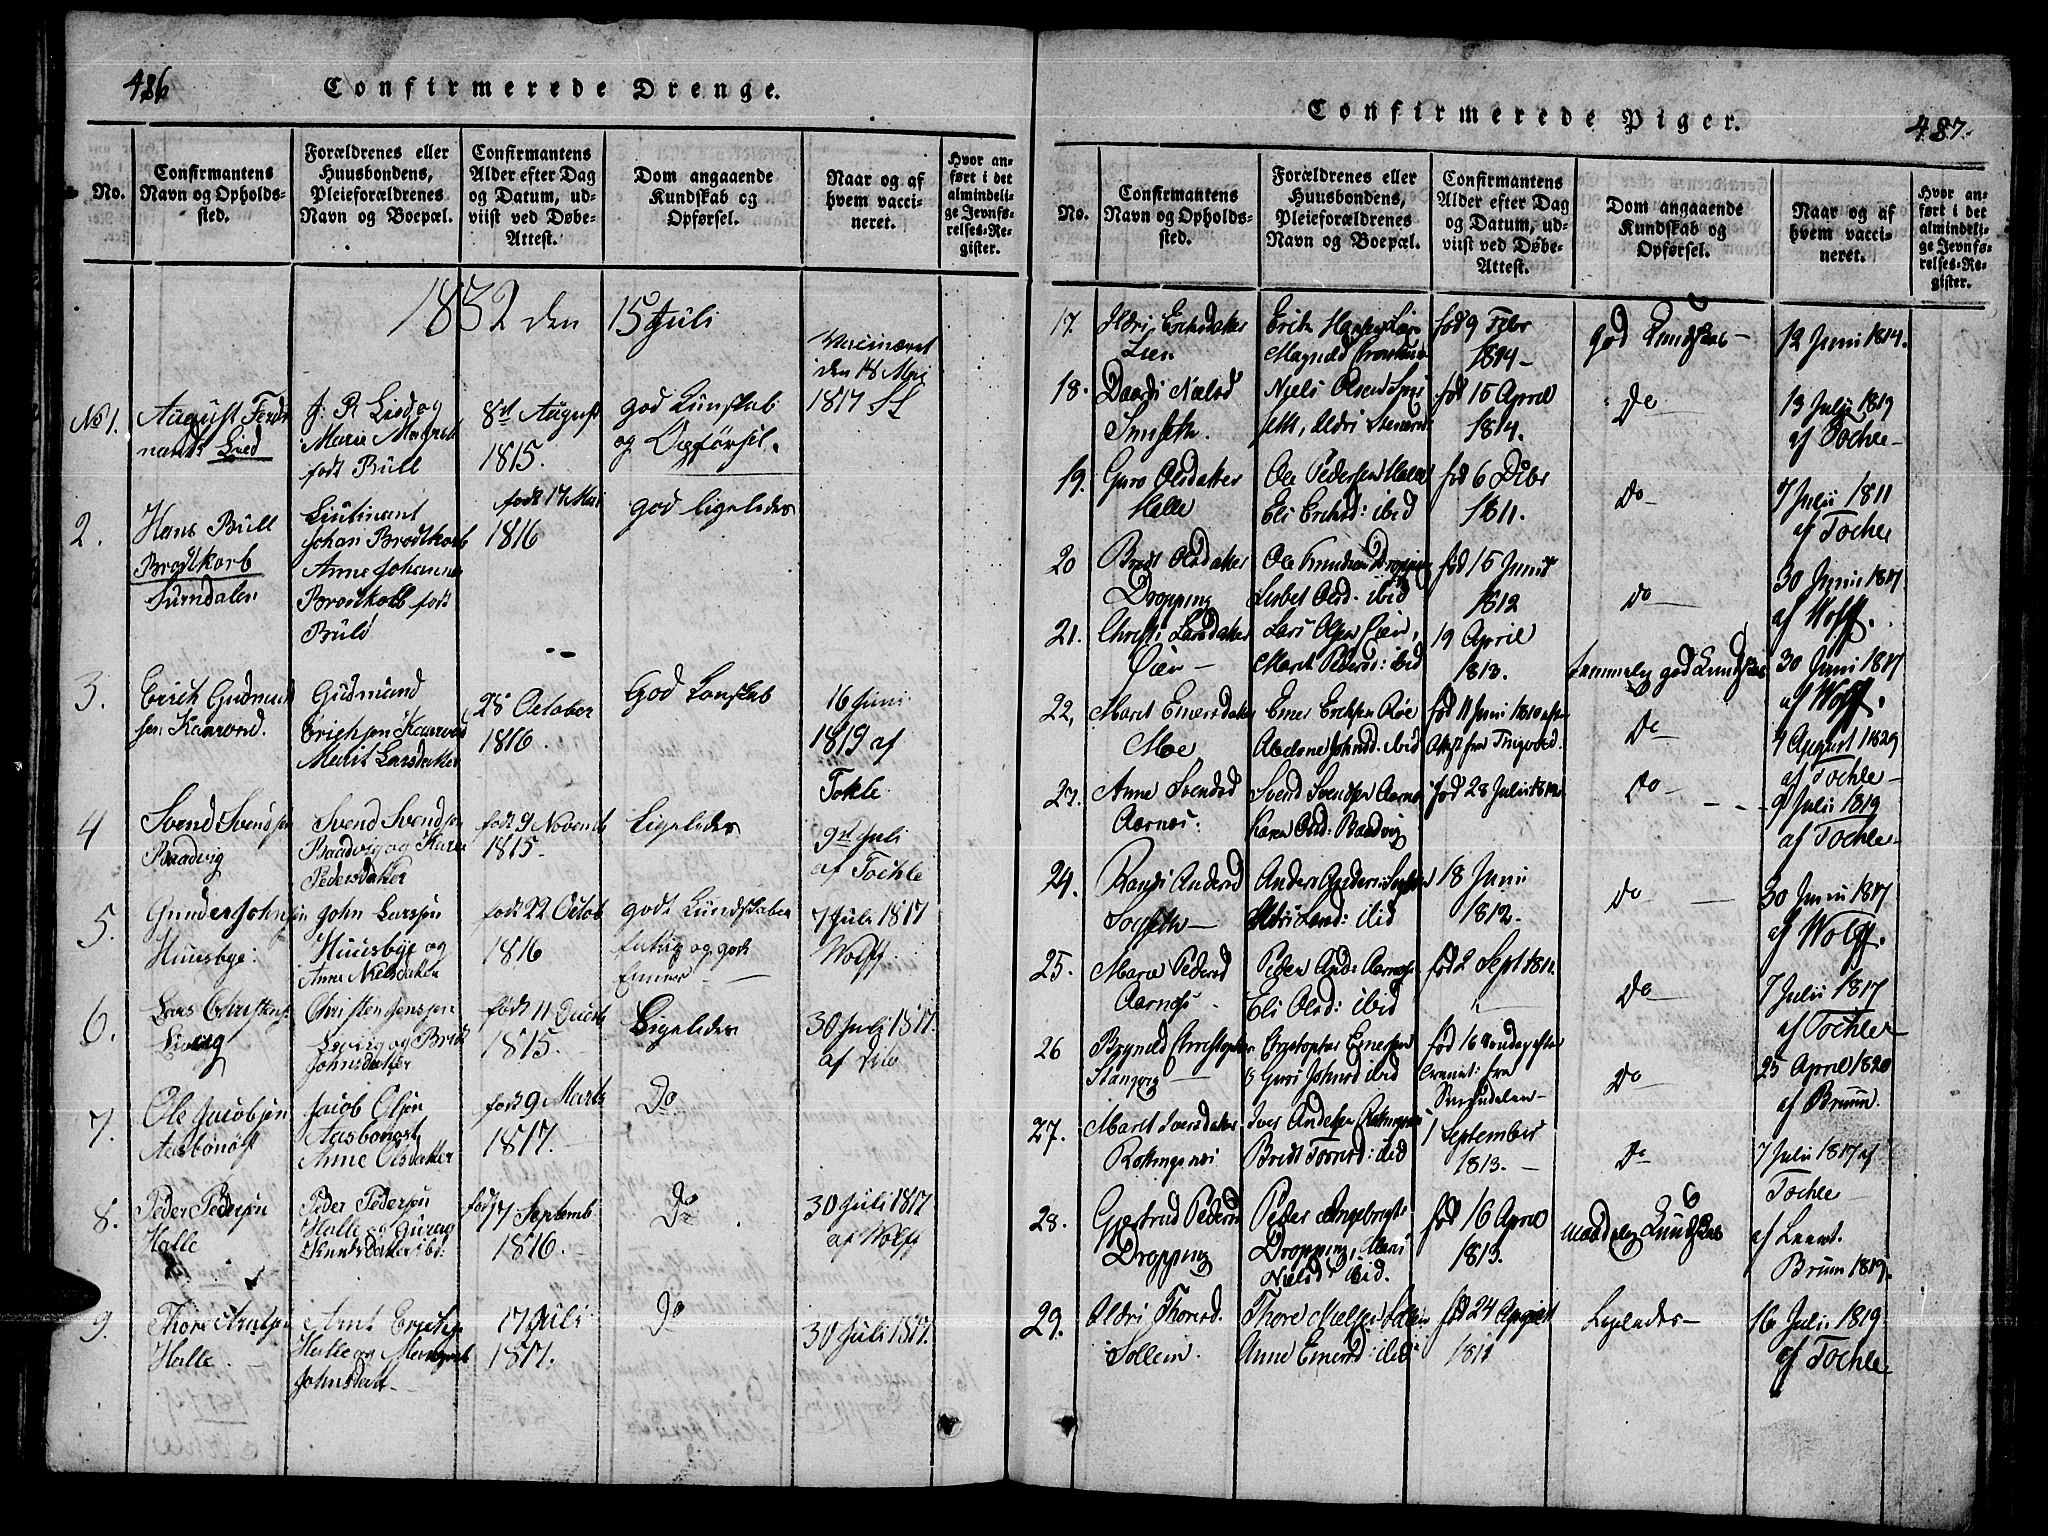 486
Confirmerede Drenge.
No.
Confirmantens
Navn og Opholds-
sted.
Forældrenes eller
Huusbondens,
Pleieforældrenes
Navn og Boepæl.
Confirmantens
Alder efter Dag
og Datum, ud-
viist ved Døbe-
Attest.
Dom angaaende
Kundskab og
Opførsel.
Naar og af
hvem vacci-
neret.
Hvor an-
ført i det
almindeli-
ge Jevnfø-
relses-Re-
gister.
1832 den 15 Juli
No 1.
August Ferdi
nandt Lied
J: R Lied og
Marie
født Büll
8de August
1815.
god Kunskab
og Opførsel.
Vaccineret
den 18 Mai
1817
2.
Hans Büll
Brodtkorb
Surndalen
Liutinant
Johan Brodtkorb
Anne Johanne
Brodtkorb født
født 17 Mai
1816
god ligeledes
3.
Erich Gudmund
sen Kaarvand.
Gudmund
Erichsen
Marit Larsdatter
28 October
1816.
God Konskab
16 Juni
1819 af
Tokle
4
Svend Svendsen
Baadvig
Svend Svendsen
Baadvig og Karen
Pedersdatter
født 9 Novemb
1815.
Ligeledes
9de Juli
af Tochle
5.
Gunder Johnsen
Huusbye:
John Larsen
Huusbye og
Anne Nielsdatter
født 22 Octob
1816
godt Kundskaber
og godt
7 Juli 1817
Wolff.
6.
Lars Christens
Christen Jensen
og Brit
Johnsdatter
født 11
1815.
Ligeledes
30 Juli 1817.
af
7.
Ole Jacobsen
Aasbønøst
Jacob Olsen
Aasbønøst
Anne Olsdatter
født 9 Marts
1817.
Do
8.
Peder Pedersen
Halle
Peder Pedersen
Halle og
Knudsdatter ib:
født 7 Septemb
1816.
Do
30 Juli 1817
af Wolff
9.
Thore Arntsen
Halle.
Arnt Erichsen
Halle og
Johnsdatt
17 Juli
1817.
Do
30 Juli 1817.
Confirmerede Piger.
487.
No.
Confirmantens
Navn og Opholds-
sted.
Forældrenes eller
Huusbondens,
Pleieforældrenes
Navn og Boepæl.
Confirmantens
Alder efter Dag
og Datum, ud-
viist ved Døbe-
Attest.
Dom angaaende
Kundskab og
Opførsel.
Naar og af
hvem vacci-
neret.
Hvor an-
ført i det
almindeli-
ge Jevnfø-
relses-Re-
gister.
17.
Ildri Erichsdatter
Lien
Erich Hansen Lien
Magnild
fød 9 Febr
1814
god Kundskab
12 Juni 1814.
18.
Nielsd
Niels Olsen
Ildri
fød 15 April
1814.
Do
13 Julii 1819
af Tochle
19.
Guro Olsdatter
Halle
Ole Pedersen Halle
Eli Erichsd: ibid
fød 6 Dcbr
1811.
Do
7 Julii 1811
af Tochle
20
Bridt Olsdatter
Dropping
Ole Knudsen Dropping
Lisbet Olsd. ibid
fød 15 Junii
1812
Do
30 Junii 1817
af Wolff.
21.
Christi Larsdatter
Øien
Lars Olsen Øien,
Marit Pedersd: ibid
19 April
1813.
temmelig god Kundskab
30 Junii 1817
af Wolff.
22,
Marit Einersdatter
Moe
Einer Erichsen Røe
Johnsd. ibid
fød 11 Juni 1810 efter
Attest fra Tingvold.
Do
7 August 1829
af Tochle
23.
Anne Svendsd
Aarnes:
Svend Svendsen Aarnes
Karen Olsd: Baadvig
fød 28 Julii 1812
Do
9 Julii 1819
af Tochle
24.
Randi Andersd
Anders Andersen
Ildri Larsd: ibid
18 Junii
1812.
Do
30 Junii 1817
af Wolff.
25.
Marie Pedersd
Aarnes
Peder And: Aarnes
Eli Olsd: ibid
fød 2 Sept 1811.
Do
7 Julii 1817
af Tochle
26
Christopher
Christopher Einersen
Guri Johnsd ibid
fød 16 Sondag efter
fra
Surendalen
Do
25 April 1820
af Bruun.
27.
Marit Iversdatter
Rottingsnes
Iver Andersen
Bridt ibid
1 September
1813.
Do
7 Julii 1817 af
Tochle
28.
Gjertrud Pedersd
Dropping
Peder Ingebrigts
Dropping, Mari
Nielsd ibid.
fød 16 April
1813.
maadelig Kundskab
af
Bruun 1819.
29.
Ildri Thoresd.
Sollein.
Thore Nielsen
Anne Einersd: ibid
fød 24 August
1811
Ligeledes
16 Julii 1819
af Tochle